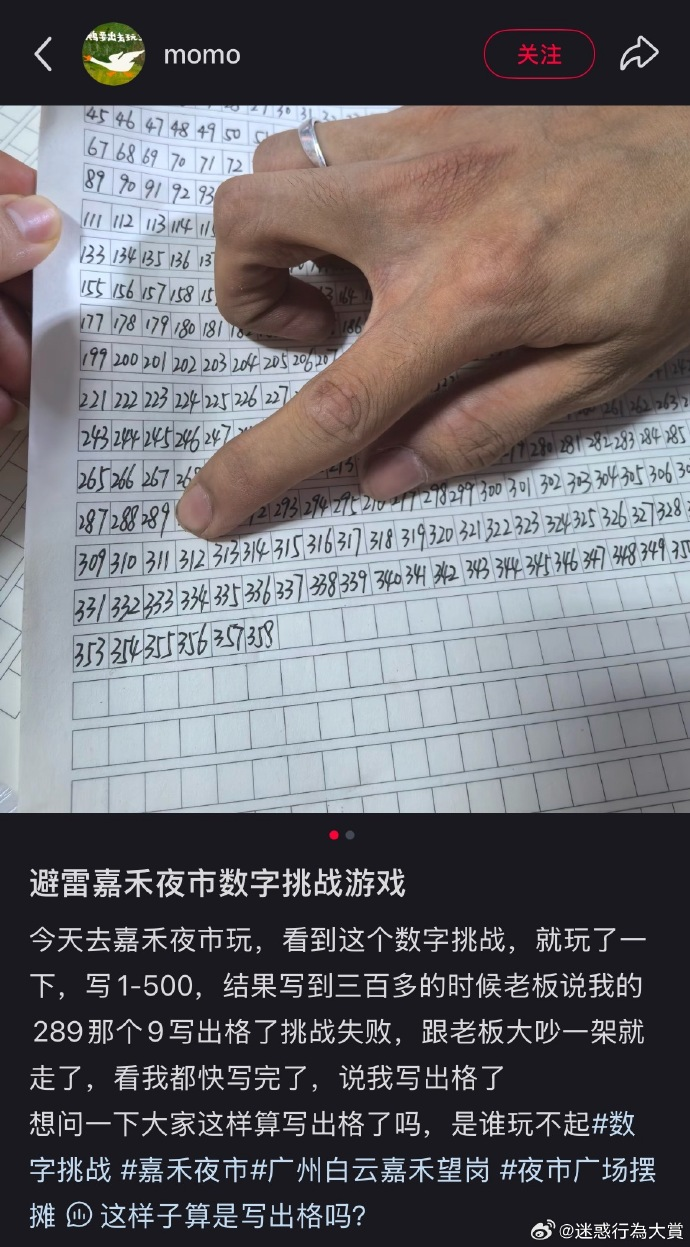 鸡要出去玩
momo
关注
45 46 47 48 49 50
67 68 69 70 71 72
89 90 91 92 93
111 112 113 114
133 134 135 136
155 156 157 158 164
177 178 179 180 181 186
199 200 201 202 203 204 205 206 207
221 222 223 224 225 226 227 261 262 263
243 244 245 246 247 280 281 282 283 284 285
265 266 267 298 299 300 301 302 303 304 305 306
287 288 289 293 294 295 319 320 321 322 323 324 325 326 327 328
309 310 311 312 313 314 315 316 317 318
331 332 333 334 335 336 337 338 339 340 341 342 343 344 345 346 347 348 349
353 354 355 356 357 358
避雷嘉禾夜市数字挑战游戏
今天去嘉禾夜市玩，看到这个数字挑战，就玩了一
下，写1-500，结果写到三百多的时候老板说我的
289那个9写出格了挑战失败，跟老板大吵一架就
走了，看我都快写完了，说我写出格了
想问一下大家这样算写出格了吗，是谁玩不起#数
字挑战 #嘉禾夜市#广州白云嘉禾望岗 #夜市广场摆
摊 这样子算是写出格吗?
@迷惑行為大賞